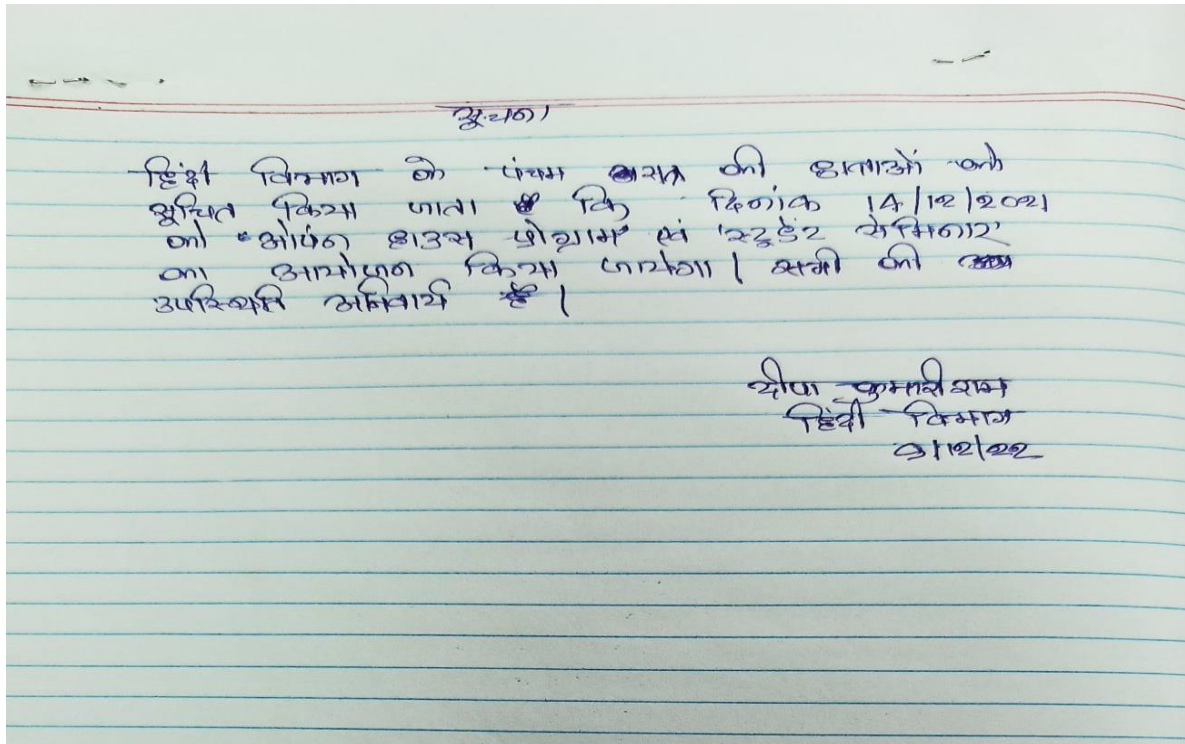 सूचना
हिंदी विभाग के पंचम सत्र की छात्राओं को
सूचित किया जाता है कि दिनांक 14/12/2021
को "ओपन हाउस प्रोग्राम' एवं 'स्टूडेंट सेमिनार'
का आयोजन किया जायेगा। सभी की
उपस्थिति अनिवार्य है।
दीपा कुमारी राम
हिंदी विभाग
9/12/22